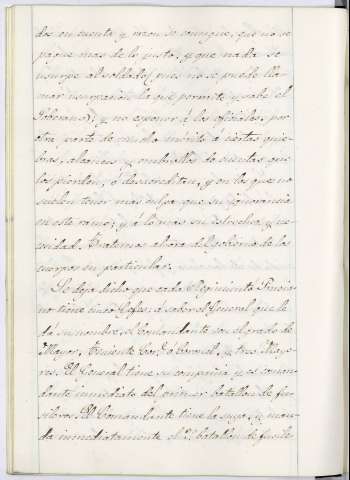 dos en cuenta y razon se consigue, que no se
pague mas de lo justo, y que nada se
usurpe al soldado (pues no se puede lla-
mar usurpacion la que permite y sabe el
Gobierno) y no esponer á los oficiales, por
otra parte de mucho mérito á ciertas quie-
bras, alcances y embrollos de cuentas que
los pierden, ó desacreditan, y en los que no
suelen tener mas culpa que su ignorancia
en este ramo, y á lo mas su estrechez y ne-
cesidad. Tratemos ahora del gobierno de los
cuerpos en particular.
Se deja dicho que cada Regimiento Prusia-
no tiene cinco Gefes; á saber el General que le
dá su nombre, el Comandante con el grado de
Mayor, Teniente Cor.l ó Coronel, y tres Mayo-
res. El General tiene su compañia y es coman-
dante inmediato del primer batallon de fu-
sileros. El Comandante tiene la suya, y man-
da inmediatamente el 2.o batallon de fusile-